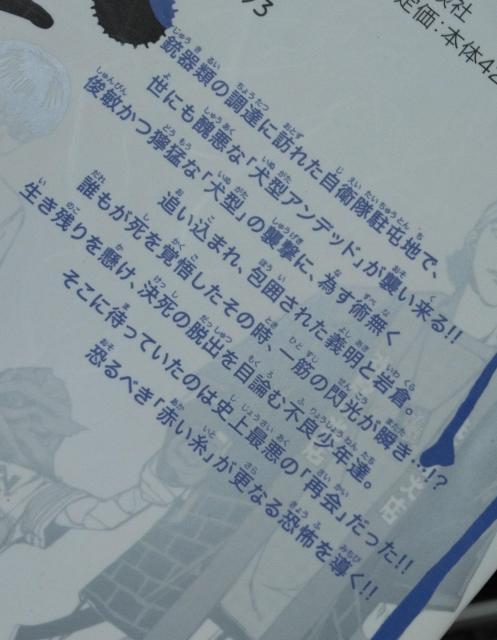 談社
定価:本体4
/3
銃器類の調達に訪れた自衛隊駐屯地で、
世にも醜悪な「犬型アンデッド」が襲い来る!!
俊敏かつ獰猛な「犬型」の襲撃に、為す術無く
追い込まれ、包囲された義明と岩倉。
誰もが死を覚悟したその時、一筋の閃光が瞬き…!?
生き残りを懸け、決死の脱出を目論む不良少年達。
そこに待っていたのは史上最悪の「再会」だった!!
恐るべき「赤い糸」が更なる恐怖を導く!!